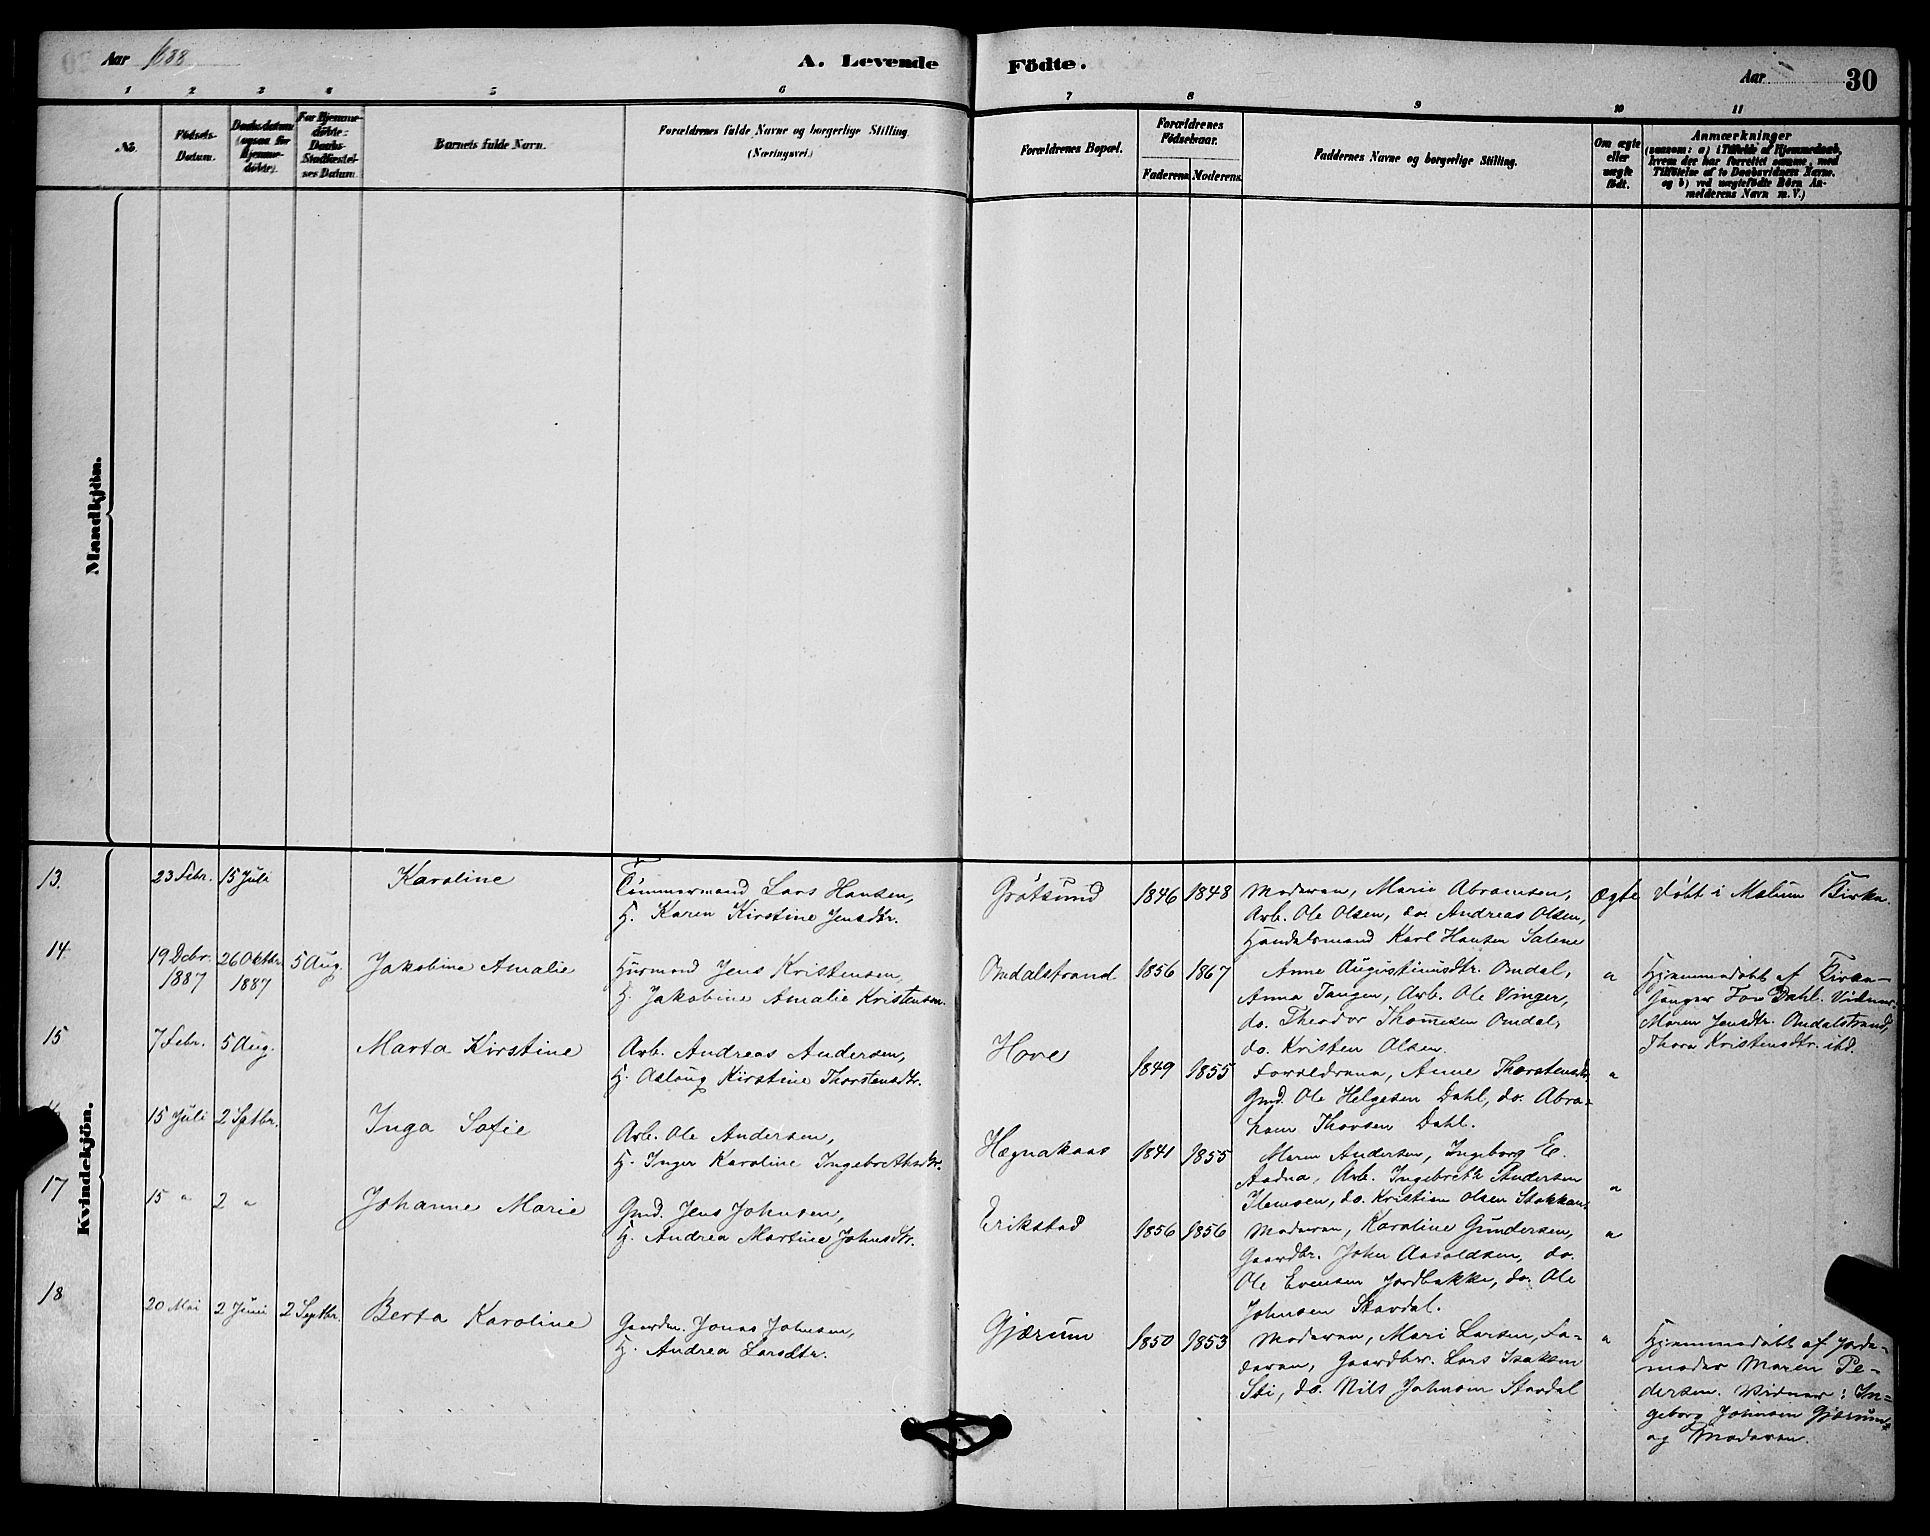 Aar 1888
A. Levende
Födte.
Aar
30
1 2 3 4 5 6 7 8 9 10 11
No.
Födsels-
Datum.
Daabsdatum
(ogsaa for
Hjemme-
döbte).
For Hjemme-
döbte:
Daabs-
Stadfæstel-
ses Datum.
Barnets fulde Navn.
Forældrenes fulde Navne og borgerlige Stilling
(Næringsvei.)
Forældrenes Bopæl.
Forældrenes
Födselsaar.
Faderens Moderens.
Faddernes Navne og borgerlige Stilling.
Om ægte
eller
uægte
födt.
Anmærkninger
(saasom: a) i Tilfælde af Hjemmedaab,
hvem der har forrettet samme, med
Tilföielse af to Daabsvidners Navne.
og b) ved uægtefödte Börn An-
melderens Navn m. V.)
Mandkjön.
Kvindekjön.
13.
23 Febr.
15 Juli
Karoline
Tömmermand Lars Hansen,
H. Karen Kirstine Jensdtr.
Grötsund
1846
1848
Moderen, Marie Abramsen,
Arb. Ole Olsen, do. Andreas Olsen,
Handelsmand Karl Hansen Salene
Ægte
Döbt i Molum Kirke.
14.
19 Debr.
1887
26 Oktbr.
1887
5 Aug.
Jakobine Amalie
Husmand Jens Kristensen,
H. Jakobine Amalie Kristensen.
Omdalstrand
1856
1867
Anne Augustinusdtr. Omdal,
Anna Tangen, Arb. Ole Vinger,
do. Theodor Thomesen Omdal,
do. Kristen Olsen.
"
Hjemmedöbt af Kirke-
sanger Tov Dahl. Vidner:
Maren Jensdtr. Omdalstrand,
Thora Kristensdtr. ibd.
15
7 Febr.
5 Aug.
Marta Kirstine
Arb. Andreas Andersen,
H. Aslaug Kirstine Thorstensdtr.
Hove
1849
1855
Forældrene, Anne Thorstensdtr.
Gmd. Ole Helgesen Dahl, do. Abra-
ham Thorsen Dahl.
"
15 Juli
2 Sptbr.
Inga Sofie
Arb. Ole Andersen,
H. Inger Karoline Ingebrethsdtr.
Hægnakaas
1841
1855
Maren Andersen, Ingeborg E.
Aadna, Arb. Ingebreth Andersen
do. Kristian Olsen
"
17
15 "
2 "
Johanne Marie
Gmd. Jens Johnsen,
H. Andrea Martine Johnsdtr.
Erikstad
1856
1856
Moderen, Karoline Gundersen,
Gaardbr. John Aasoldsen, do.
Ole Evensen Jordbakke, do. Ole
Johnsen Stavdal.
"
18
20 Mai
2 Juni
2 Septbr.
Berta Karoline
Gaardm. Jonas Johnsen,
H. Andrea Larsdtr.
Gjærum
1850
1853
Moderen, Mari Larsen, Fa-
deren, Gaardbr. Lars Isaksen
Sti, do. Nils Johnsen Stavdal
"
Hjemmedöbt af Jorde-
moder Maren Pe-
dersen. Vidner: In-
geborg Johnsen Gjærum
og Moderen.